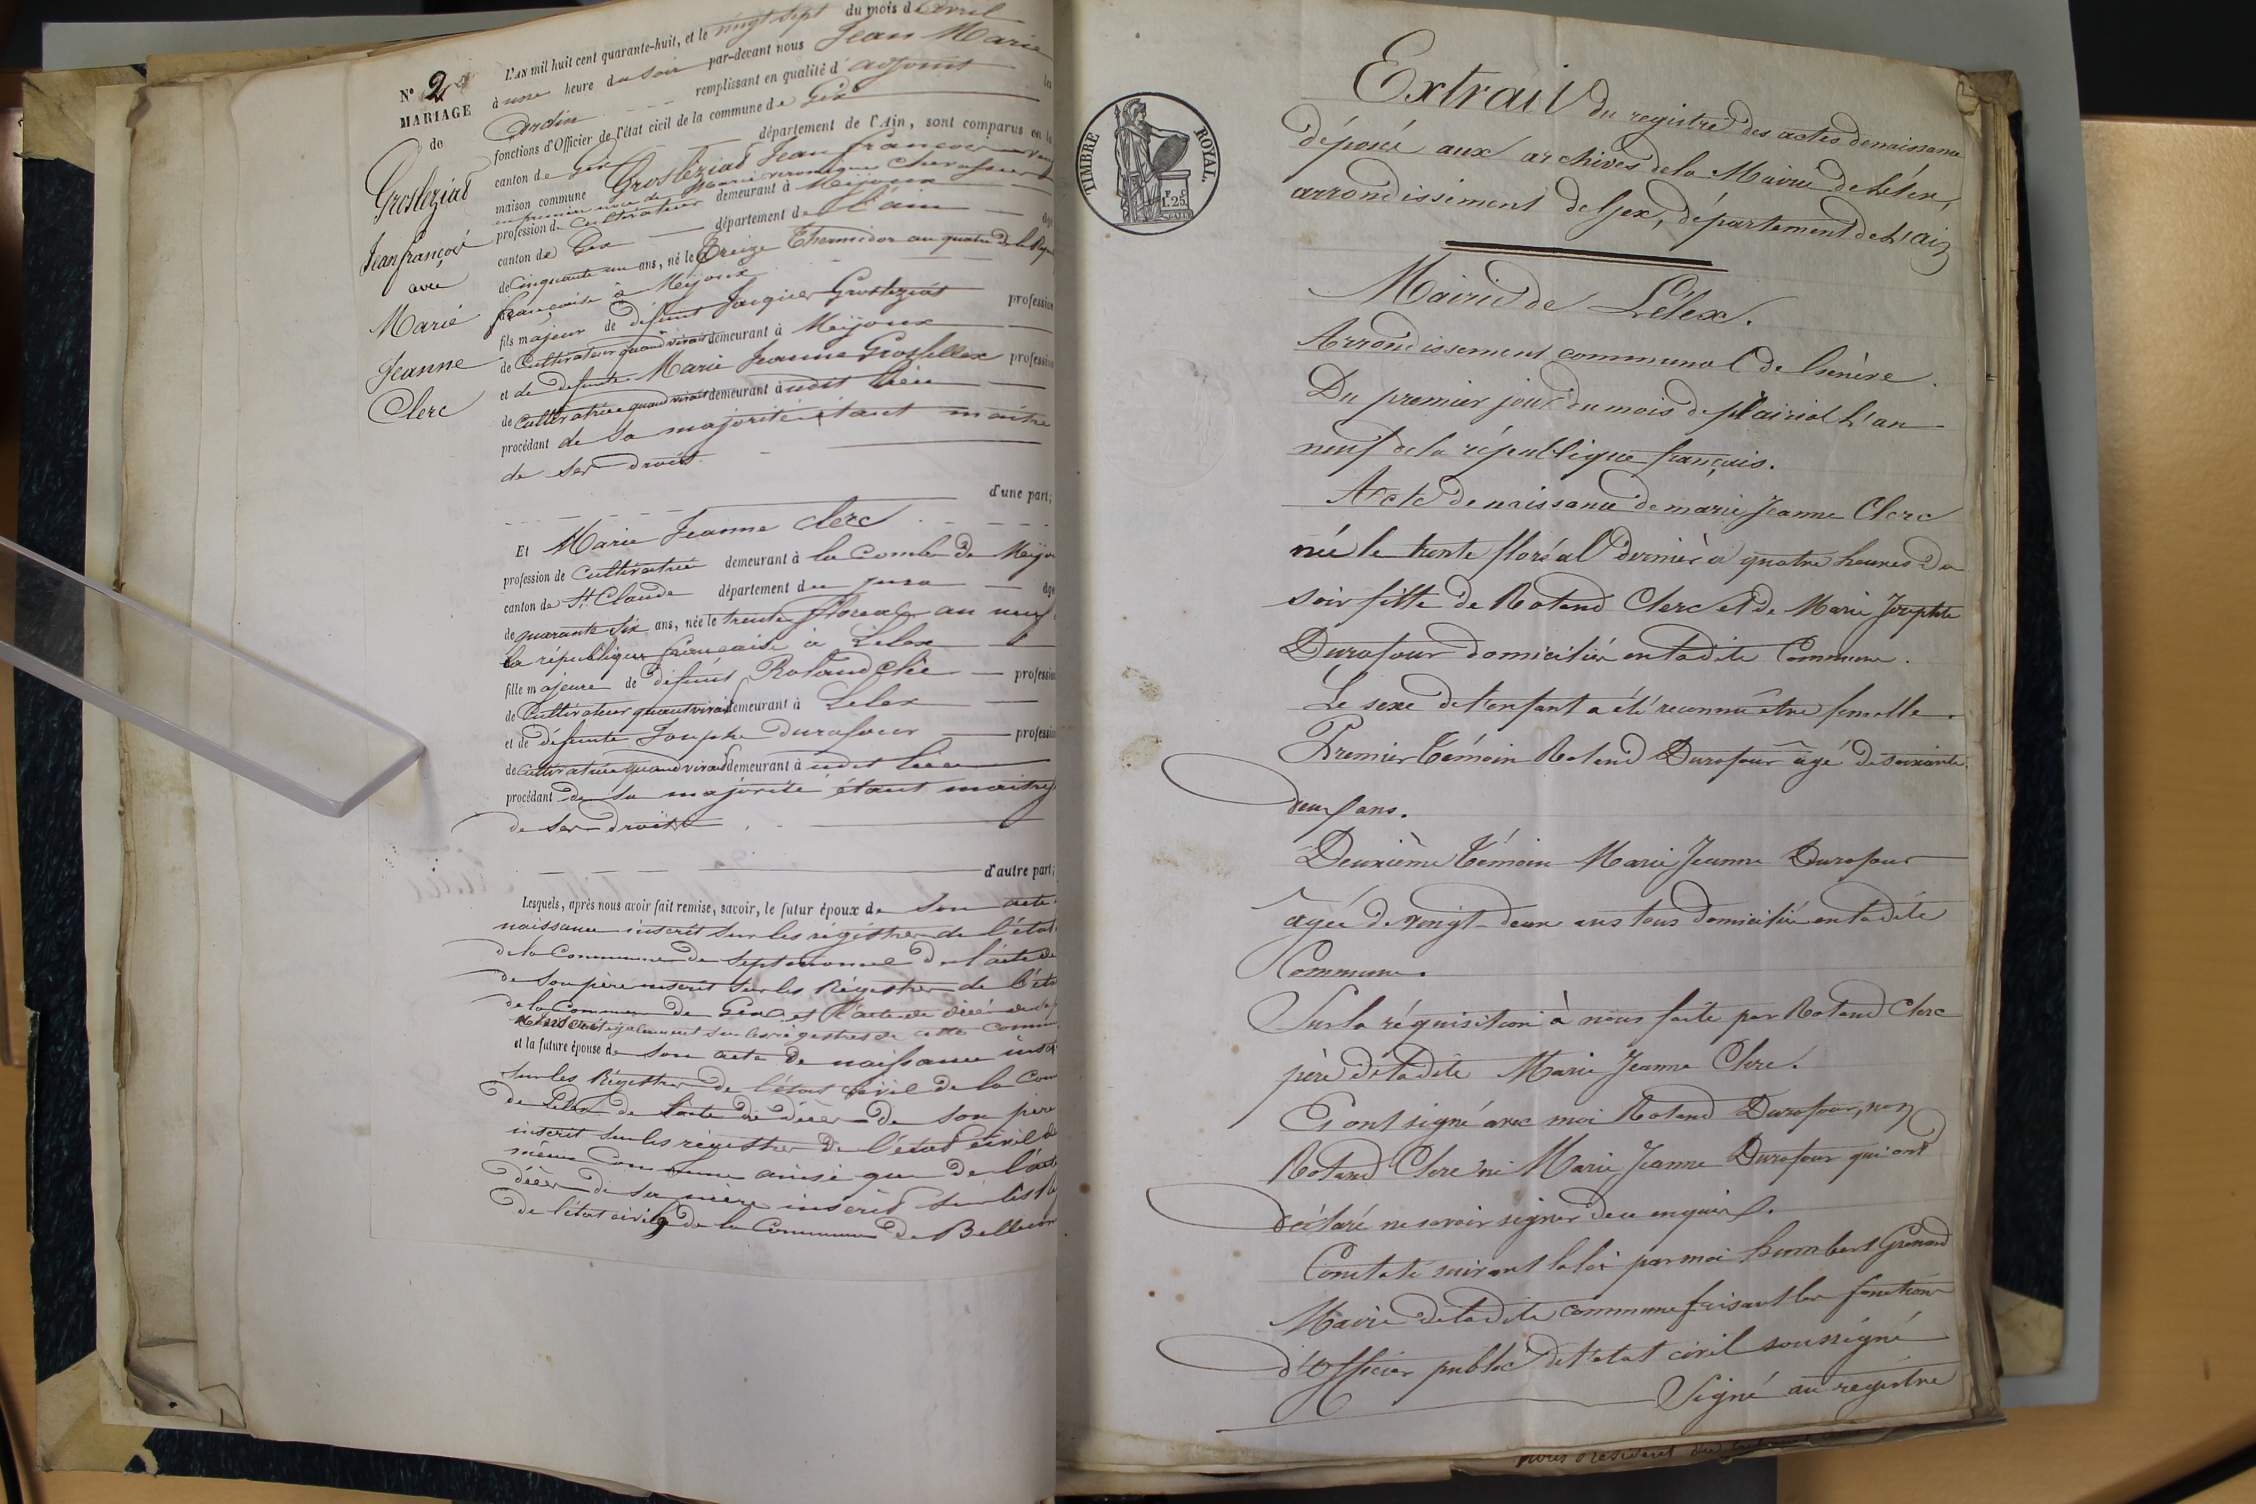 N° 2
MARIAGE
de
Grosleziat
Jean françois
avec
Marie
Jeanne
Clerc
L'AN mil huit cent quarante-huit, et le vingt sept du mois d'avril
à une heure du soir par-devant nous Jean Marie
remplissant en qualité d'adjoint les
fonctions d'Officier de l'état civil de la commune de Gex
canton de Gex département de l'Ain, sont comparus en la
maison commune Grosleziat Jean françois veuf
en premier noce de Marie veronique
profession de cultivateur demeurant à Mijoux
canton de Gex département de l'ain âgé
de cinquante un ans, né le treize Thermidor an quatre de la Répu
française à Mijoux
fils majeur de défunt Jacques Grosleziat profession
de Cultivateur quand vivait demeurant à Mijoux
et de défunte Marie Jeanne Grosfillex profession
de cultivatrice quand vivait demeurant à udit lieu
procédant de sa majorité étant maître
de ses droits
d'une part;
Et Marie Jeanne Clerc
profession de cultivatrice demeurant à la combe de Mijou
canton de St Claude département du jura âgé
de quarante six ans, née le trente floreal an neuf
la république française à Lelex
fille majeure de défunt Roland Clerc profession
de Cultivateur quand vivait demeurant à Lelex
et de défunte Josephe Durafour profession
de cultivatrice quand vivait demeurant à udit lieu
procédant de sa majorité étant maitresse
de ses droits
d'autre part;
Lesquels, après nous avoir fait remise, savoir, le futur époux de son acte
naissance inscrit sur les régistres de l'état
de la Commune de Septmoncel de l'acte de
de son père inscrit sur les Régistres de l'éta
de la Commune de Gex et l'acte de décès de sa
inscrit également sur les régistres de cette commu
et la future épouse de son acte de naissance insc
sur les Régistres de l'état civil de la Com
de Lelex de l'acte de décès de son père
inscrit sur les régistres de l'état civil de
même Commune ainsi que de l'act
décès de sa mère inscrit sur les
de l'état civil de la Commune de Bellecom
TIMBRE ROYAL.
1.25
Extrait du registre des actes de naissance
déposé aux archives de la Mairie de Lélex,
arrondissement de Gex, département de l'ain
Mairie de Lélex.
Arrondissement communal de Genève.
Du premier jour du mois de plairial l'an
neuf de la république français.
Acte de naissance de marie Jeanne Clerc
née le trente floréal dernier à quatre heures du
soir fille de Roland Clerc et de Marie Josephte
Durafour domiciliés en ladite Commune.
Le sexe de l'enfant a été reconnu être femelle.
Premier témoin Roland Durafour âgé de soixante
deux ans.
Deuxième témoin Marie Jeanne Durafour
agée de vingt-deux ans tous domicilié en ladite
Commune.
Sur la réquisition à nous faite par Roland Clerc
père de ladite Marie Jeanne Clerc.
Et ont signé avec moi Roland Durafour, non
Roland Clerc ni Marie Jeanne Durafour qui ont
déclaré ne savoir signer de ce enquis.
Constaté suivant la loi par moi humbert Grenard
Mairie de ladite commune faisant les fonctions
d'officier public de l'état civil soussigné
Signé au registre